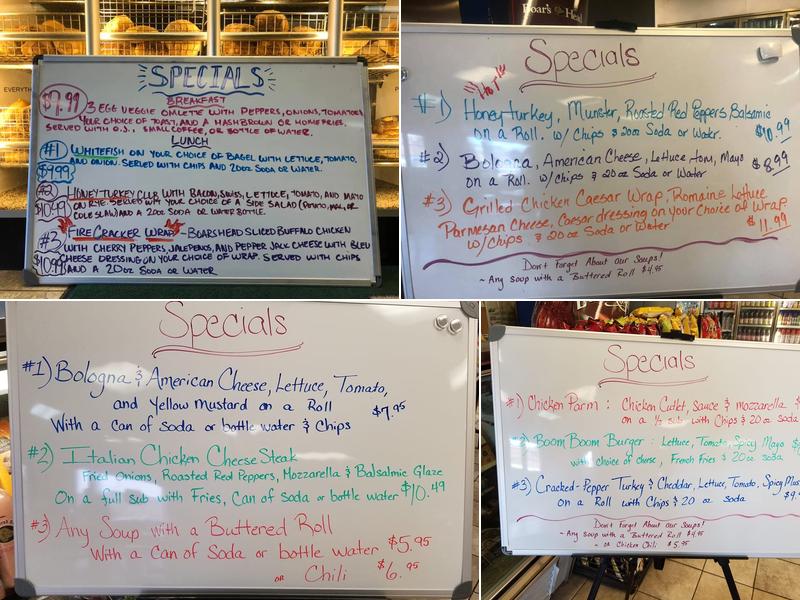 SPECIALS
BREAKFAST
$7.99 3 EGG VEGGIE OMLETE WITH PEPPERS, ONIONS, TOMATOES
YOUR CHOICE OF TOAST, AND A HASHBROWN OR HOMEFRIES.
SERVED WITH O.J., SMALL COFFEE, OR BOTTLE OF WATER.
LUNCH
#1 WHITEFISH ON YOUR CHOICE OF BAGEL WITH LETTUCE, TOMATO,
AND ONION. SERVED WITH CHIPS AND 20OZ SODA OR WATER.
$9.99
#2 HONEY TURKEY CLUB WITH BACON, SWISS, LETTUCE, TOMATO, AND MAYO
$10.99 ON RYE. SERVED WITH YOUR CHOICE OF A SIDE SALAD (POTATO, MAC, OR
COLE SLAW) AND A 20OZ SODA OR WATER BOTTLE.
#3 FIRE CRACKER WRAP - BOARSHEAD SLICED BUFFALO CHICKEN
WITH CHERRY PEPPERS, JALEPENOS, AND PEPPER JACK CHEESE WITH BLEU
$10.99 CHEESE DRESSING ON YOUR CHOICE OF WRAP. SERVED WITH CHIPS
AND A 20OZ SODA OR WATER
EVERYTH
Boar's Head
Specials
#1) Honey turkey, Munster, Roasted Red Peppers Balsamic
on a Roll. w/ Chips & 20oz Soda or Water. $10.99
#2) Bologna, American Cheese, Lettuce tom, Mayo
on a Roll. w/ Chips & 20oz Soda or Water $8.99
#3) Grilled Chicken Caesar Wrap, Romaine Lettuce
Parmesan Cheese, Caesar dressing on your Choice of Wrap.
w/Chips & 20 oz Soda or Water $11.99
Don't Forget About our Soups!
~ Any Soup w/ a Buttered Roll $4.95
Specials
#1) Bologna & American Cheese, Lettuce, Tomato,
and Yellow Mustard on a Roll
With a can of soda or bottle water & Chips $7.95
#2) Italian Chicken Cheese Steak
Fried Onions, Roasted Red Peppers, Mozzarella & Balsalmic Glaze
On a full sub with Fries, Can of soda or bottle water $10.49
#3) Any Soup with a Buttered Roll
With a Can of Soda or bottle water $5.95
or Chili $6.95
Specials
#1) Chicken Parm: Chicken Cutlet, Sauce & Mozzarella $
on a 1/2 sub with Chips & 20oz soda
#2) Boom Boom Burger: Lettuce, Tomato, Spicy Mayo
with choice of cheese, French Fries & 20oz soda
#3) Cracked-Pepper Turkey & Cheddar, Lettuce, Tomato, Spicy Mus
on a Roll with Chips & 20 oz soda $9.
Don't Forget About our Soups!
~ Any Soup with a Buttered Roll $4.95
~ or Chicken Chili $5.95